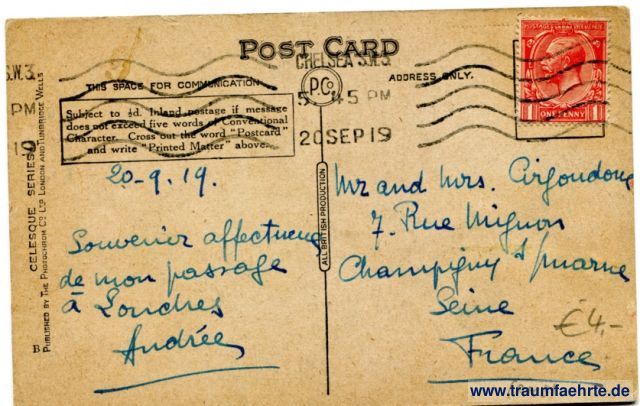 POST CARD
CHELSEA S.W.3.
5 45 PM
20 SEP 19
S.W.3
PM
19
THIS SPACE FOR COMMUNICATION
P.Co
ADDRESS ONLY.
POSTAGE REVENUE
ONE PENNY
Subject to ½d. Inland postage if message
does not exceed five words of Conventional
Character. Cross out the word "Postcard"
and write "Printed Matter" above.
CELESQUE SERIES
PUBLISHED BY THE PHOTOCHROM CO LTD LONDON AND TUNBRIDGE WELLS
ALL BRITISH PRODUCTION
20-9.19.
Souvenir affectueux
de mon passage
à Londres
Andrée
B
Mr and Mrs.
7. Rue Mignon
Champigny s/marne
Seine
France
€4,-
www.traumfaehrte.de